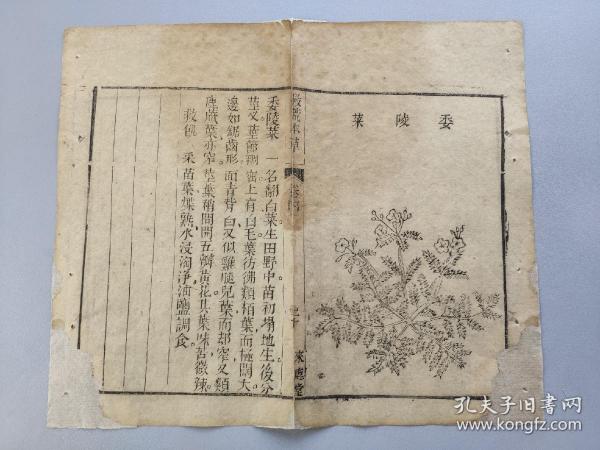 菜陵委
救荒本草
卷
來鹿堂
委陵菜 一名翻白菜生田野中苗初搨地生後分
莖叉莖節稠密上有白毛葉彷彿類栢葉而極闊大
邊如鋸齒形面青背白又似雞腿兒葉而却窄又類
鹿蕨葉亦窄莖葉稍間開五瓣黃花其葉味苦微辣
救飢 采苗葉煠熟水浸淘淨油鹽調食
孔夫子旧书网
www.kongfz.com